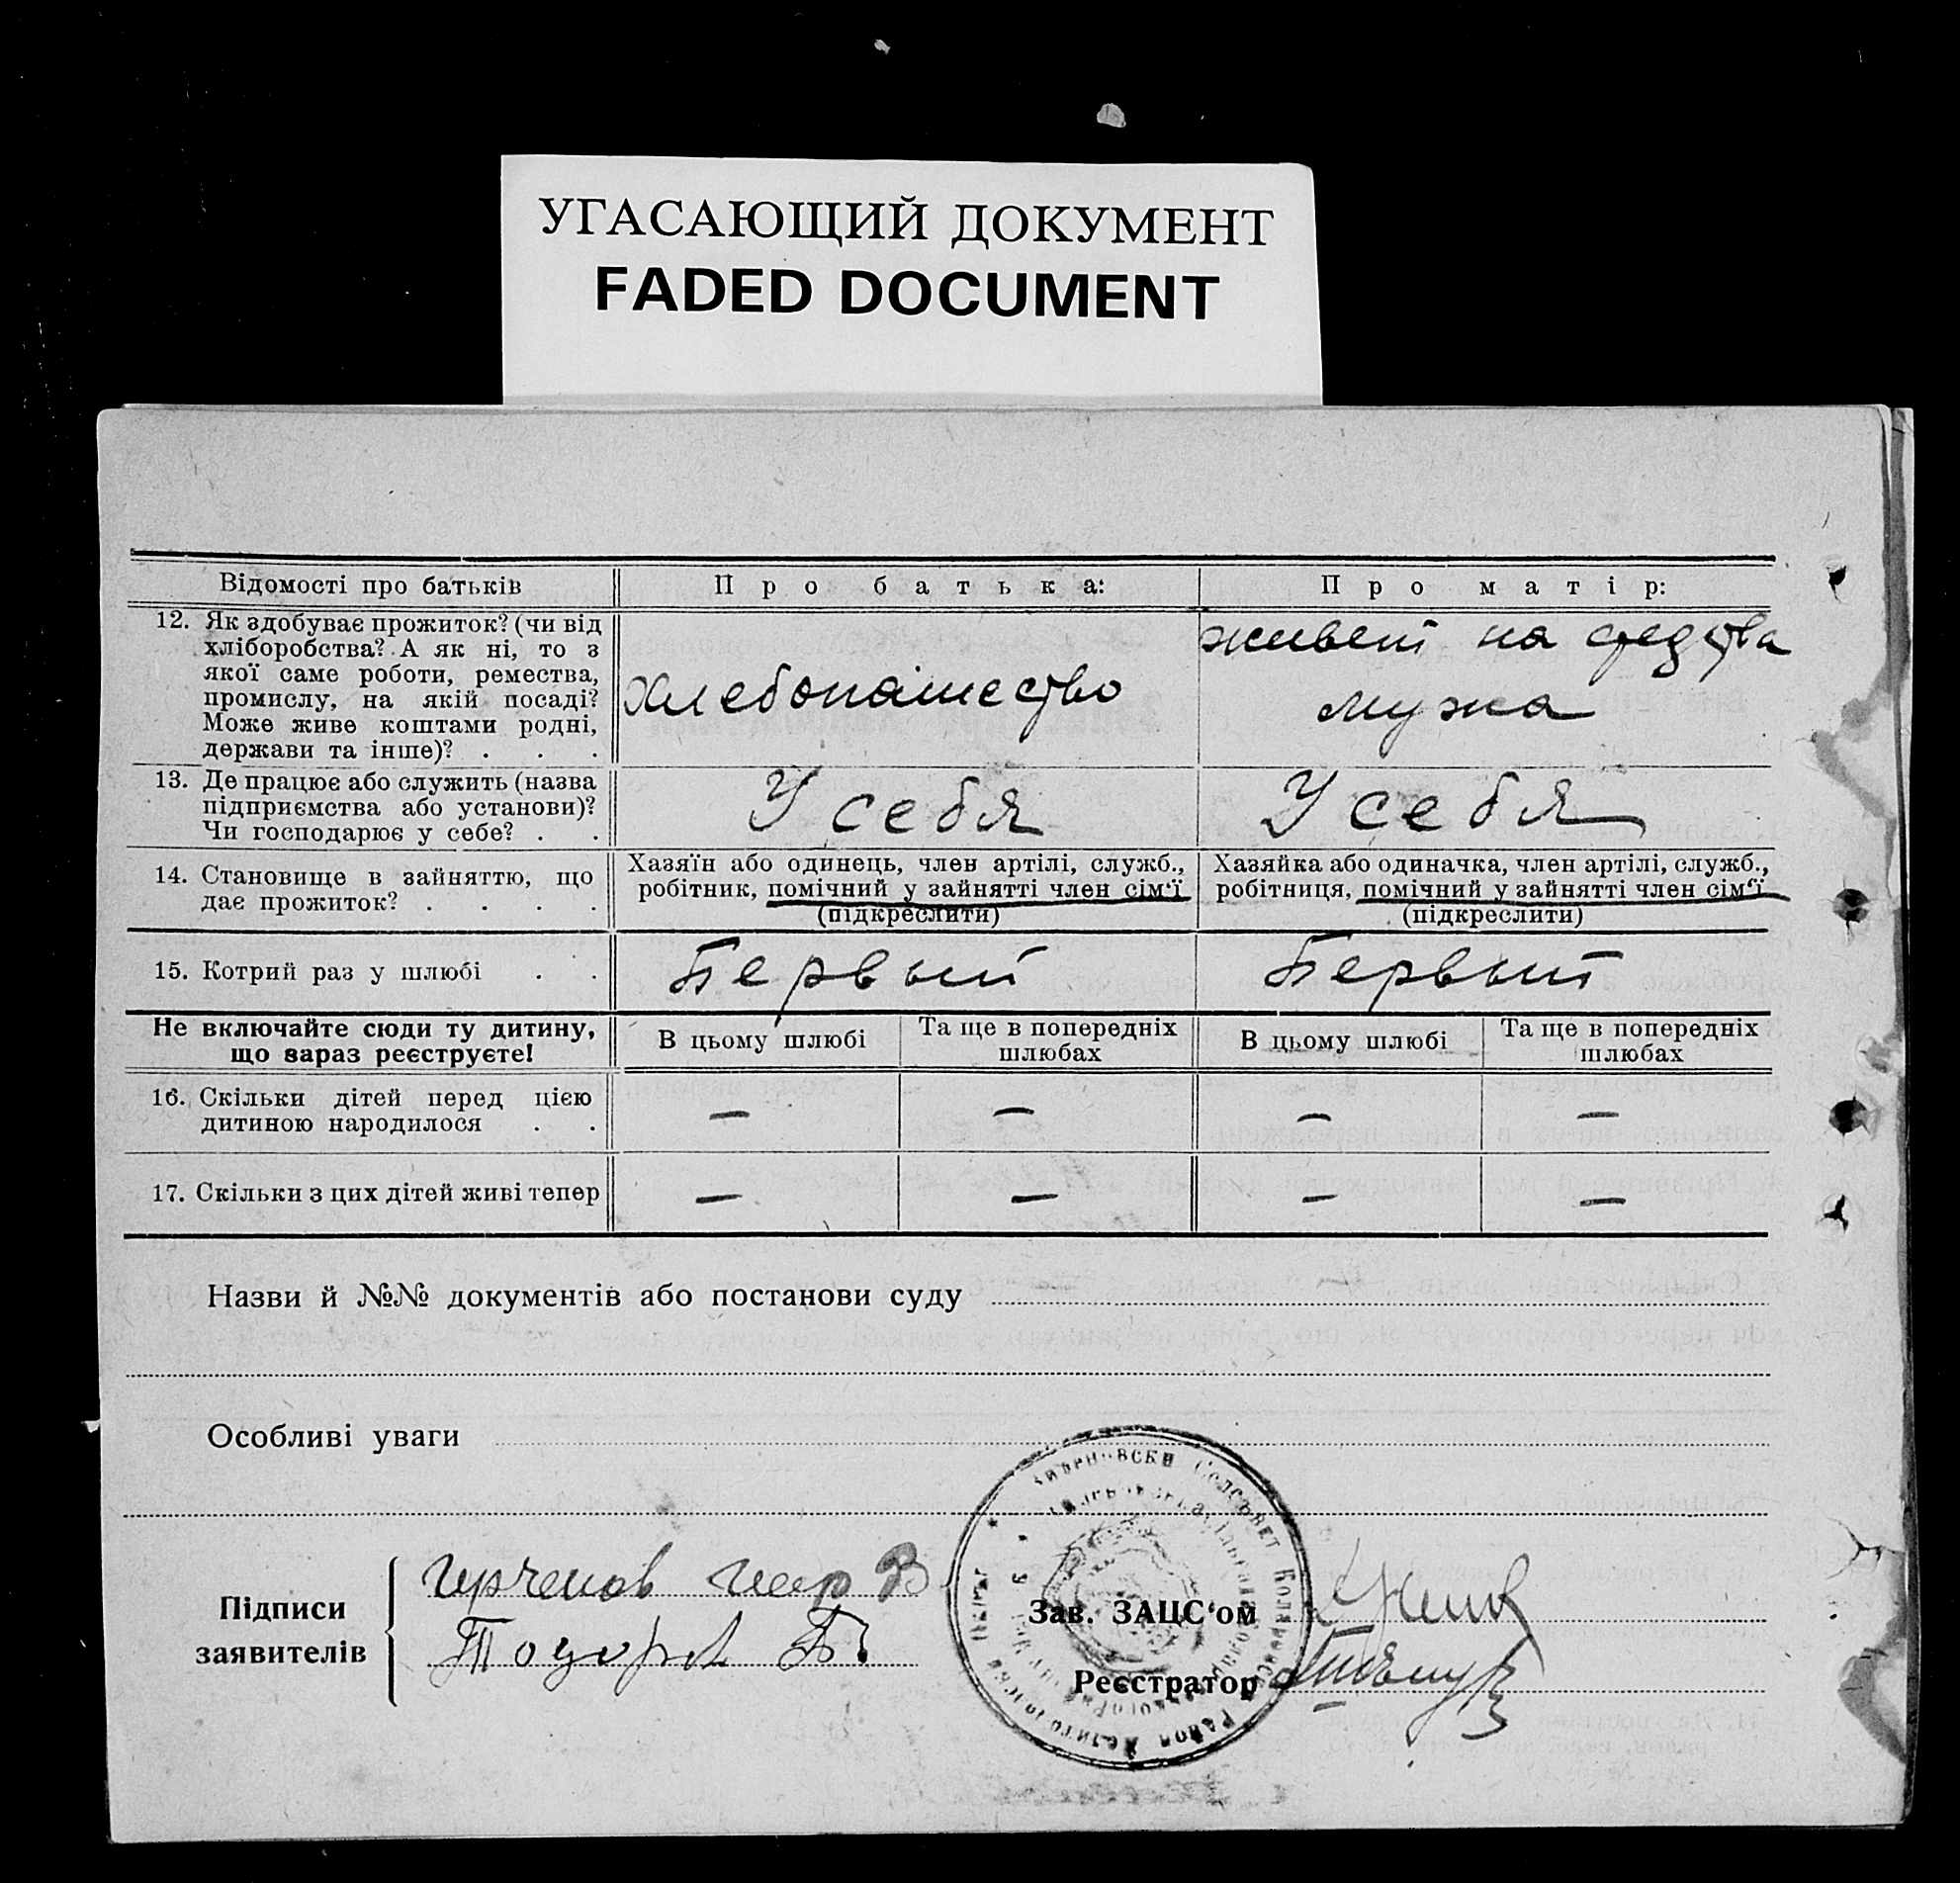 УГАСАЮЩИЙ ДОКУМЕНТ
FADED DOCUMENT
Відомості про батьків
Про батька:
Про матір:
12. Як здобуває прожиток? (чи від
хліборобства? А як ні, то з
якої саме роботи, ремества,
промислу, на якій посаді?
Може живе коштами родні,
держави та інше)? . . .
Хлебопашество
живет на средства
мужа
13. Де працює або служить (назва
підприємства або установи)?
Чи господарює у себе? . .
У себя
У себя
14. Становище в зайняттю, що
дає прожиток? . . . .
Хазяїн або одинець, член артілі, служб.,
робітник, помічний у зайнятті член сім'ї
(підкреслити)
Хазяйка або одиначка, член артілі, служб.,
робітниця, помічний у зайнятті член сім'ї
(підкреслити)
15. Котрий раз у шлюбі . .
Первый
Первый
Не включайте сюди ту дитину,
що зараз реєструєте!
В цьому шлюбі
Та ще в попередніх
шлюбах
В цьому шлюбі
Та ще в попередніх
шлюбах
16. Скільки дітей перед цією
дитиною народилося . .
— — — —
17. Скільки з цих дітей живі тепер
— — — —
Назви й №№ документів або постанови суду
Особливі уваги
Підписи
заявителів
Зав. ЗАЦС'ом
Реєстратор